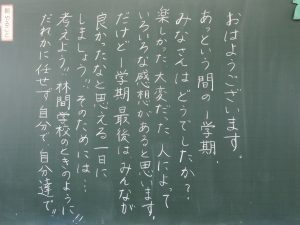 おはようございます。
あっという間の一学期、
みなさんはどうでしたか?
楽しかった、大変だった、人によって
いろいろな感想があると思います。
だけど一学期最後はみんなが
良かったなと思える一日に
しましょう!!そのためには…
考えよう!!林間学校のときのように、
だれかに任せず自分で、自分達で!!